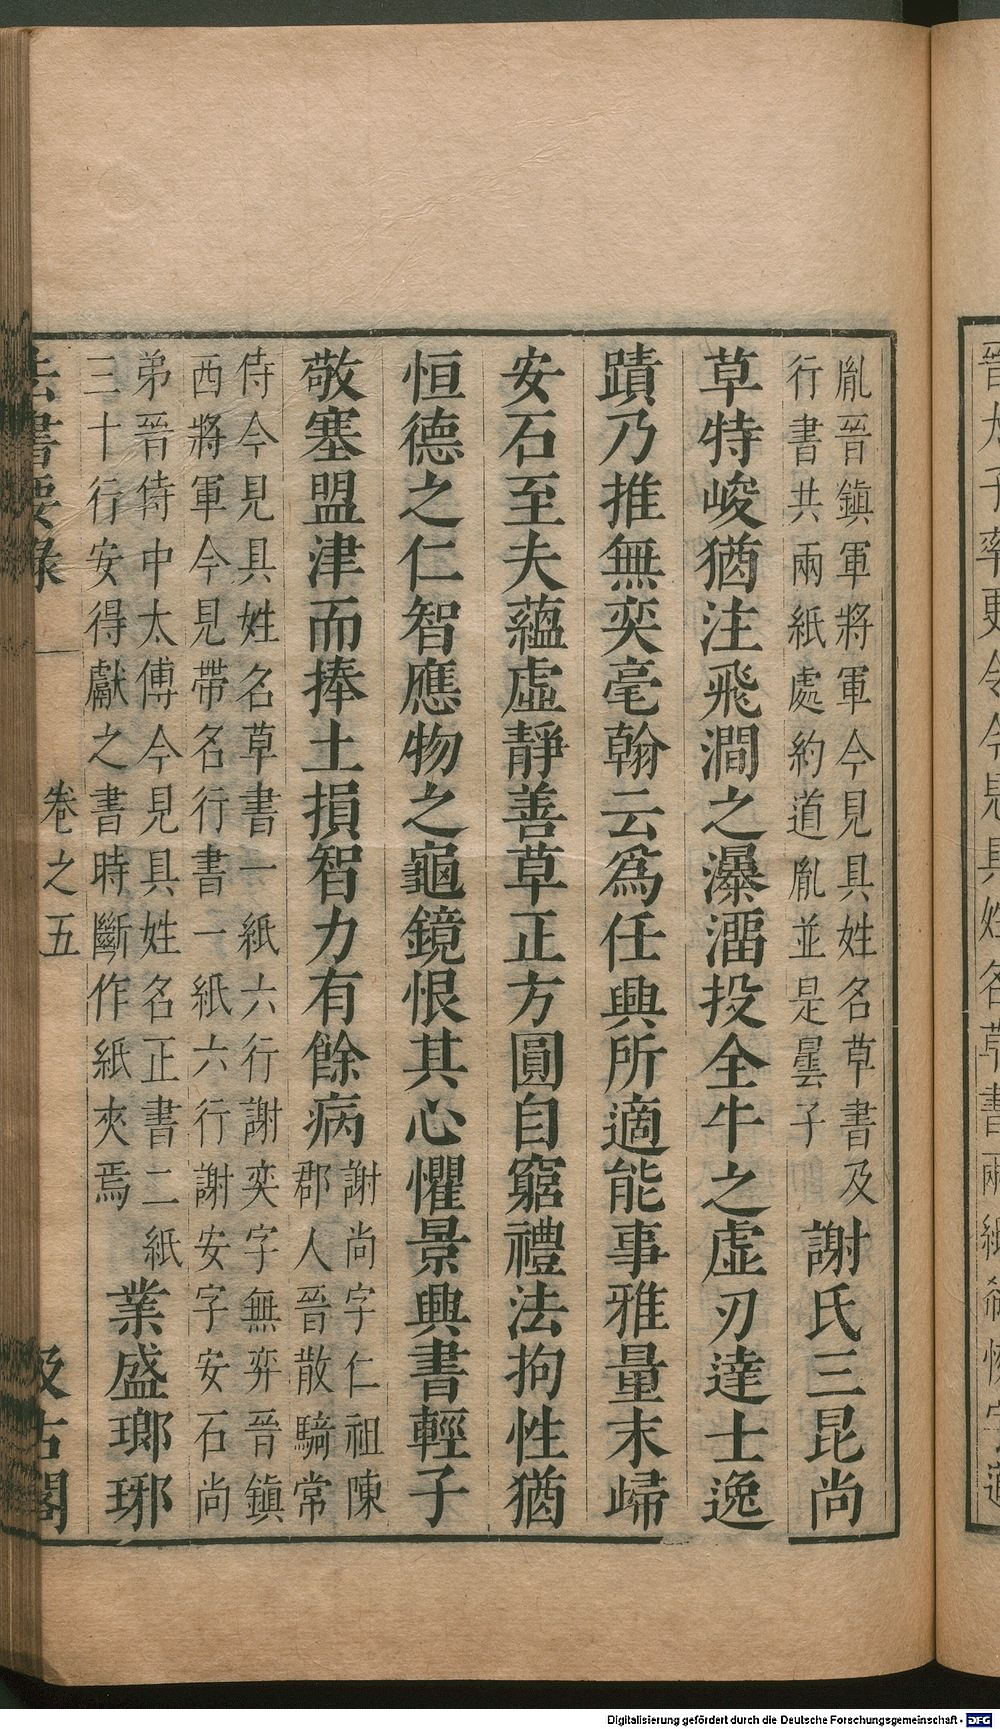 胤晉鎮軍將軍今見具姓名草書及
行書共兩紙處約道胤並是曇子
謝氏三昆尚
草特峻猶注飛澗之瀑溜投全牛之虛刃達士逸
蹟乃推無奕毫翰云為任興所適能事雅量末歸
安石至夫蘊虛靜善草正方圓自窮禮法拘性猶
恒德之仁智應物之龜鏡恨其心懼景興書輕子
敬塞盟津而捧土損智力有餘病
謝尚字仁祖陳
郡人晉散騎常
侍今見具姓名草書一紙六行謝奕字無弈晉鎮
西將軍今見帶名行書一紙六行謝安字安石尚
弟晉侍中太傅今見具姓名正書二紙
三十行安得獻之書時斷作紙夾焉
業盛瑯琊
法書要錄 卷之五 汲古閣
Digitalisierung gefördert durch die Deutsche Forschungsgemeinschaft - DFG